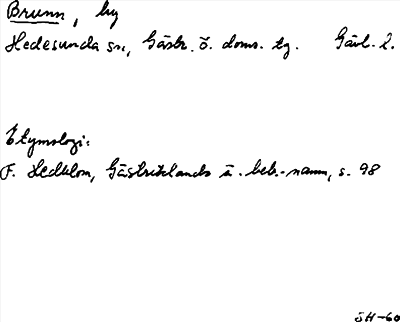 Brunn, by
Hedesunda sn, Gästr. ö. doms. tg. Gävl. l.
Etymologi:
F. Hedblom, Gästriklands ä. beb.-namn, s. 98
SH-60